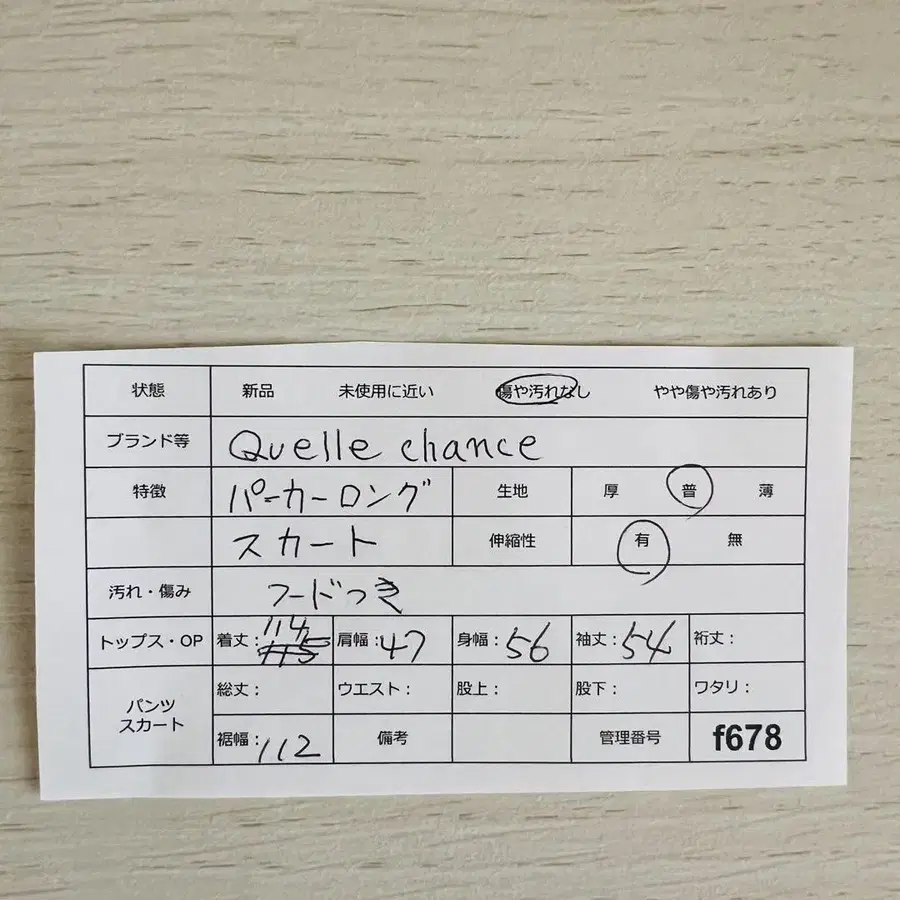 状態 新品 未使用に近い 傷や汚れなし やや傷や汚れあり
ブランド等 Quelle chance
特徴 パーカーロング 生地 厚 普 薄
スカート 伸縮性 有 無
汚れ・傷み フードつき
トップス・OP 着丈：114 115 肩幅：47 身幅：56 袖丈：54 裄丈：
パンツ スカート 総丈： ウエスト： 股上： 股下： ワタリ：
裾幅：112 備考 管理番号 f678